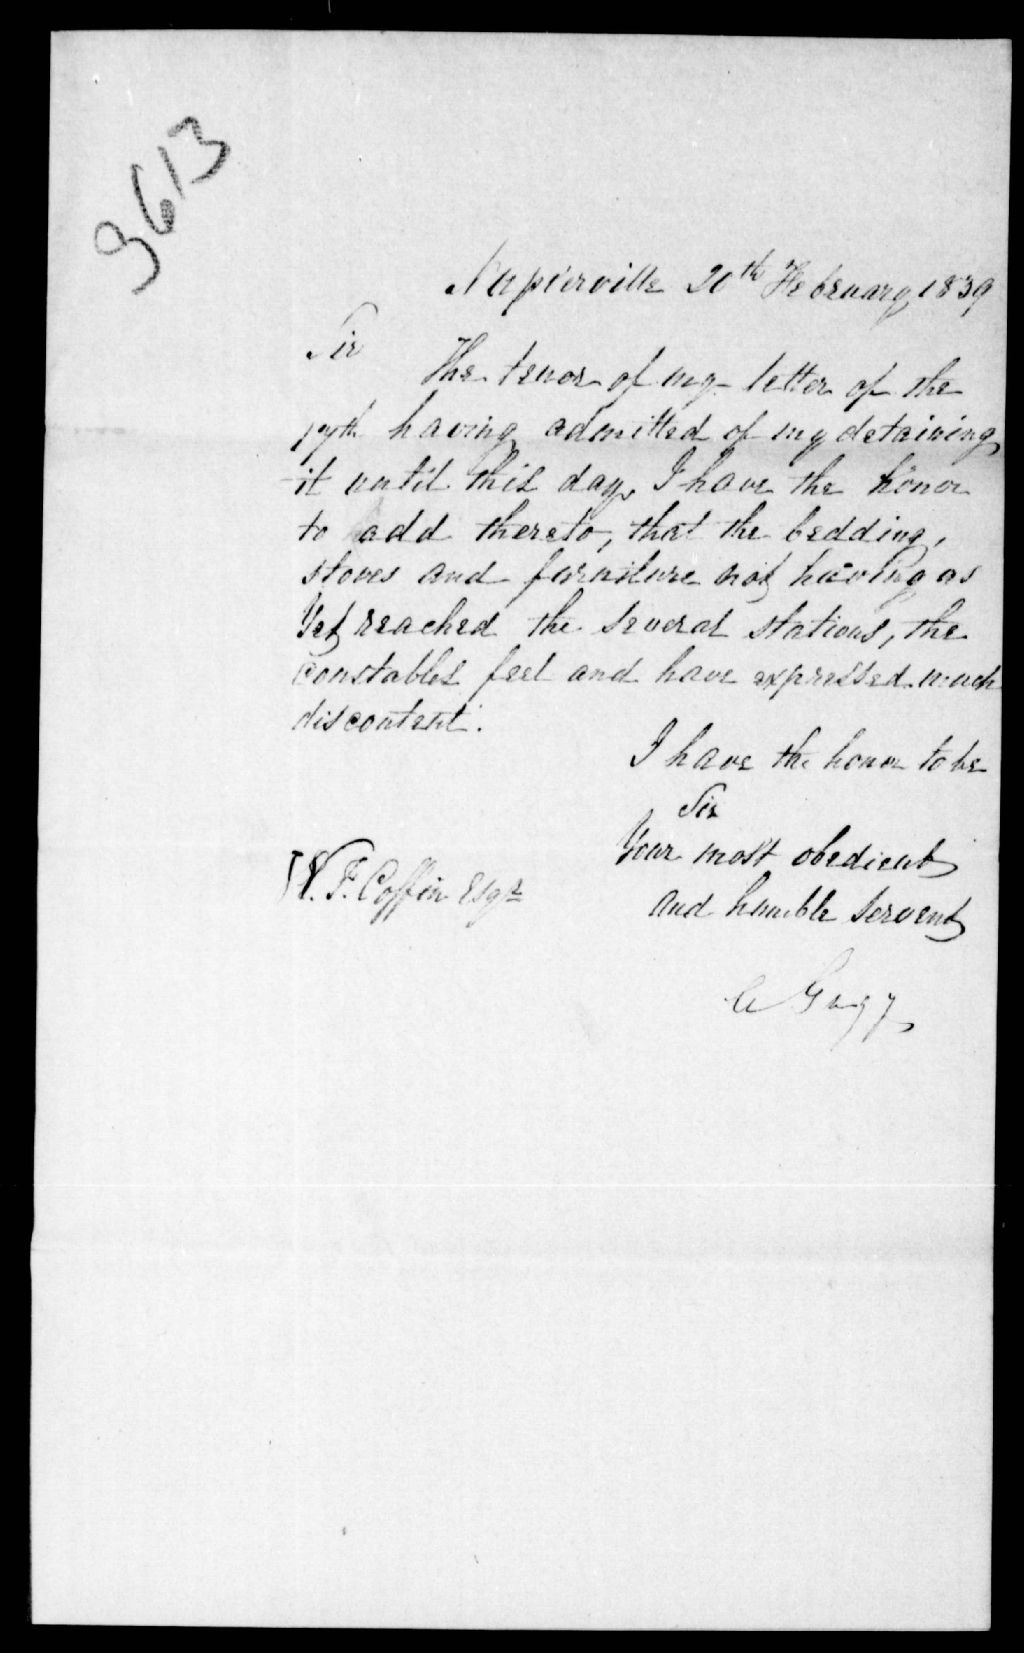 9613
Napierville 20th February 1839
Sir
The tenor of my letter of the
17th having admitted of my detaining
it until this day, I have the honor
to add thereto, that the bedding,
stoves and furniture not having as
Yet reached the several stations, the
constables feel and have expressed much
discontent.
I have the honor to be
Sir
Your most obedient
and humble servent
W. F. Coffin Esqr
Gugy